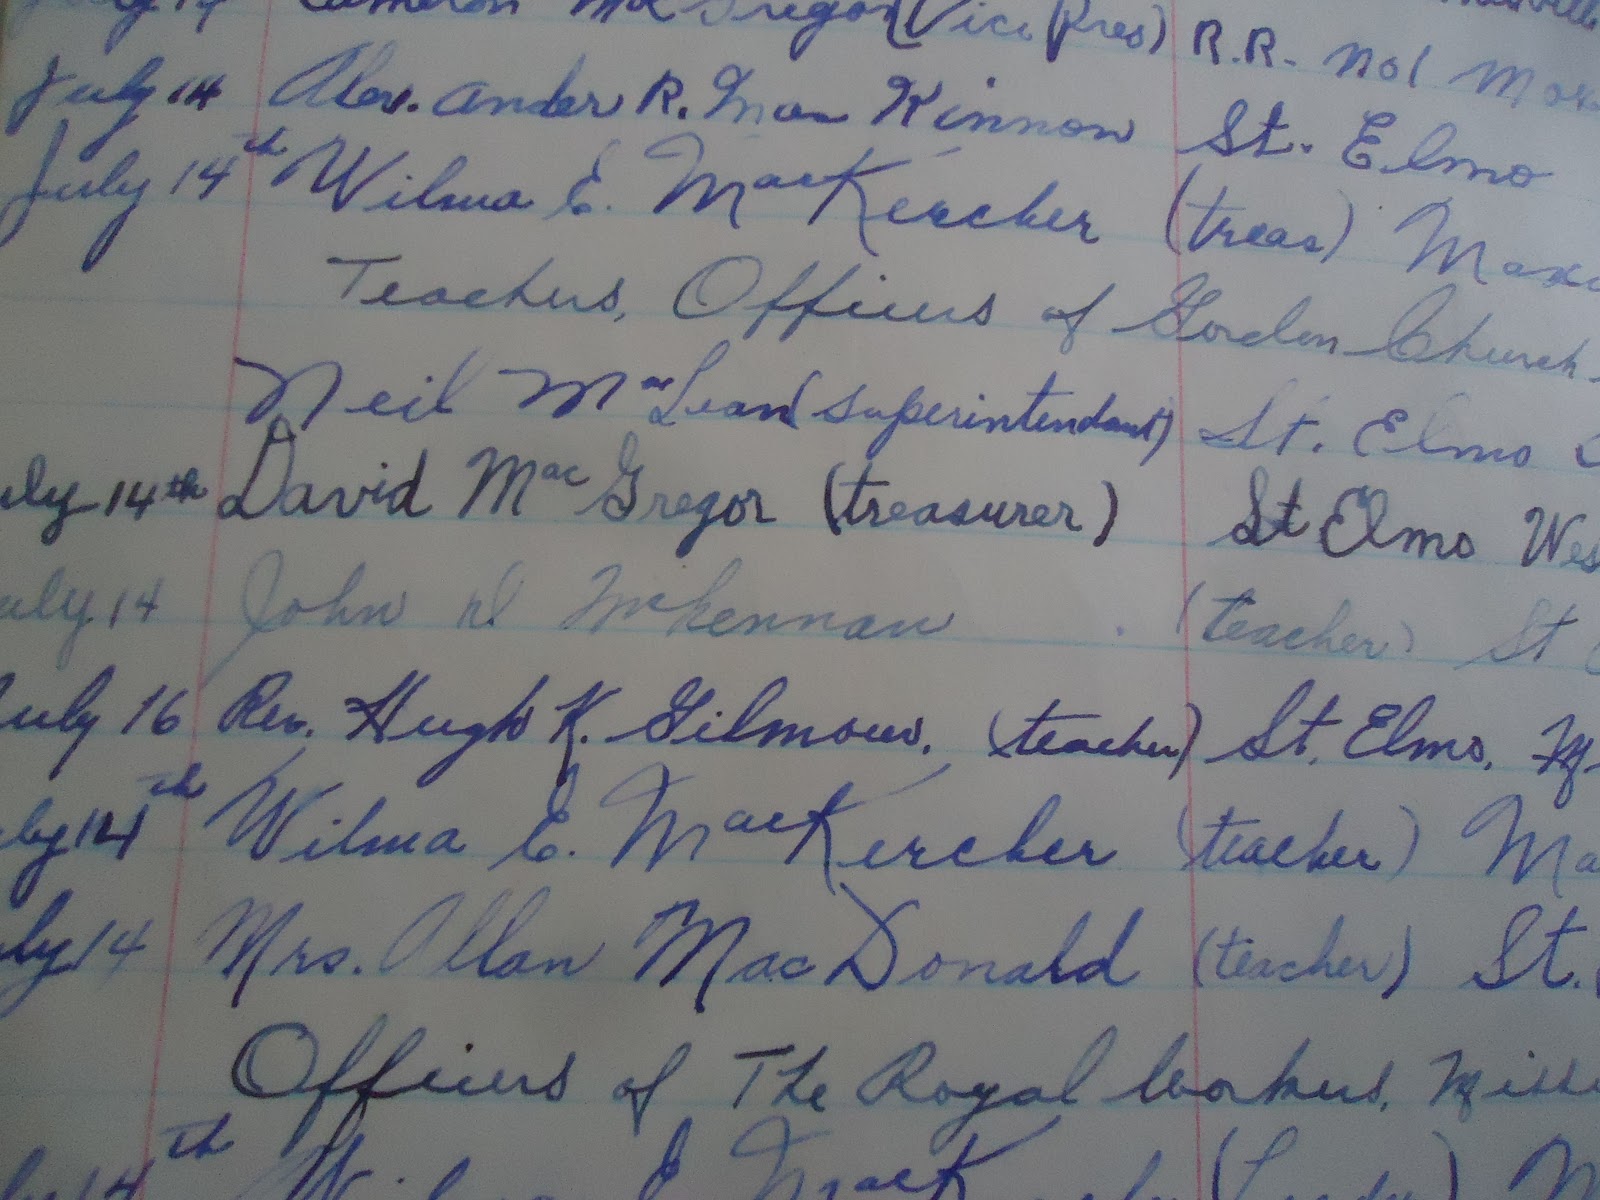 July 14 Cameron MacGregor (Vice Pres) R.R. No 1
July 14 Alex.ander R. Mac Kinnon St. Elmo
July 14th Wilma E. MacKercher (treas)
Teachers, Officers of Gordon Church
Neil MacLean (superintendant) St. Elmo
July 14th David MacGregor (treasurer) St Elmo
July 14 John D McKennan (teacher) St
July 16 Rev. Hugh K. Gilmour. (teacher) St. Elmo,
July 14th Wilma E. MacKercher (teacher)
July 14 Mrs. Allan MacDonald (teacher) St.
Officers of The Royal Workers,
14th Wilma E